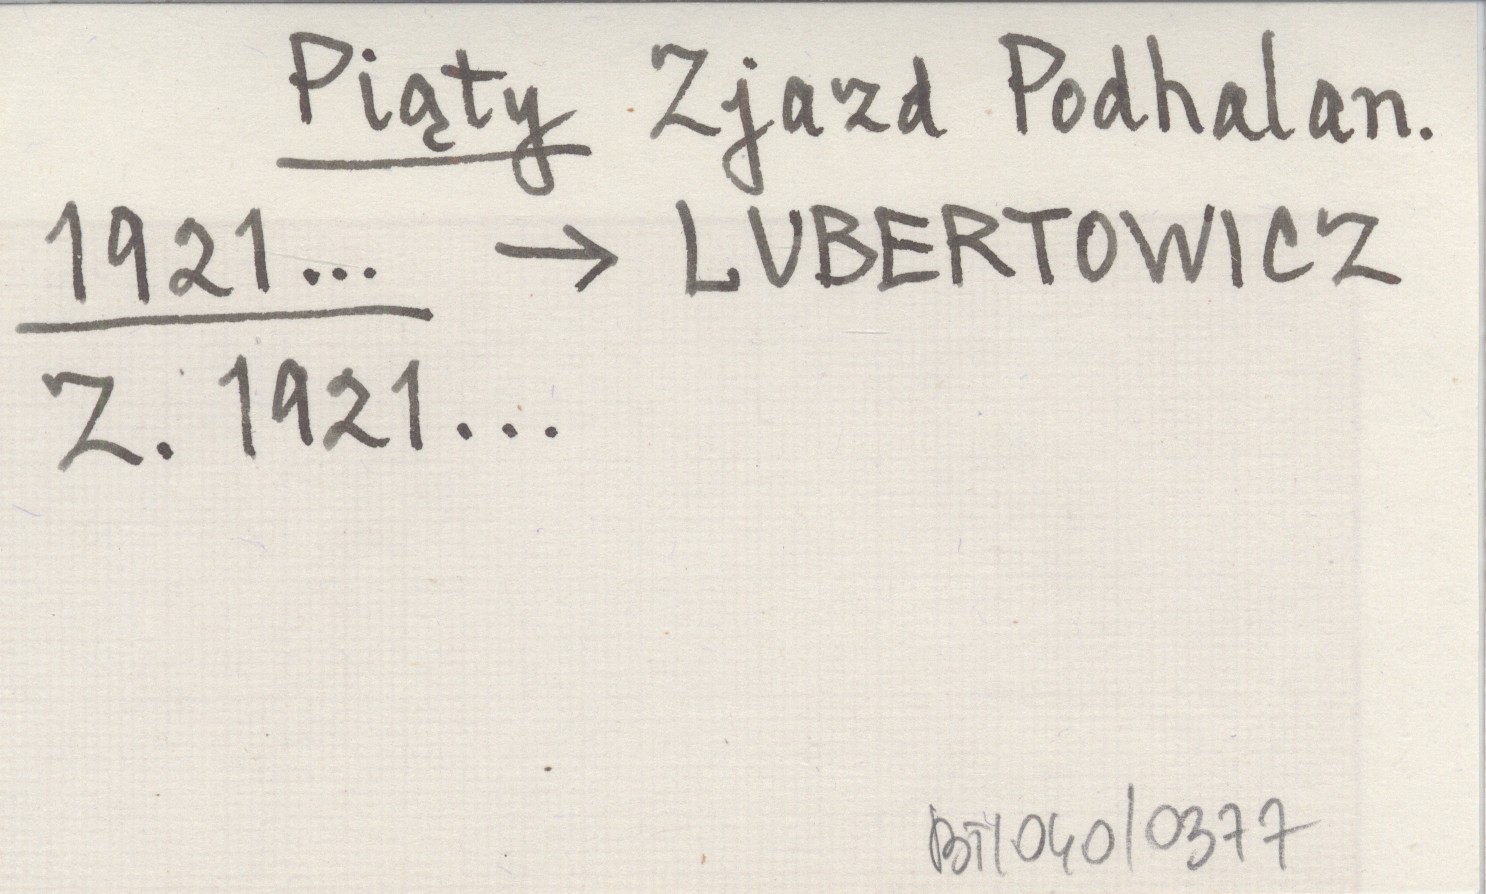 Piąty Zjazd Podhalan.
1921... → LUBERTOWICZ
Z. 1921...
BT/040/0377